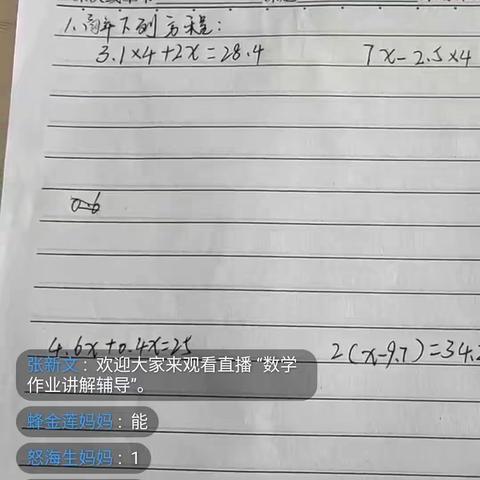 1、解下列方程：
3.1×4+2x=28.4
7x-2.5×4
4.6x+0.4x=25
2(x-9.7)=34.
张新文：欢迎大家来观看直播“数学
作业讲解辅导”。
蜂金莲妈妈：能
怒海生妈妈：1